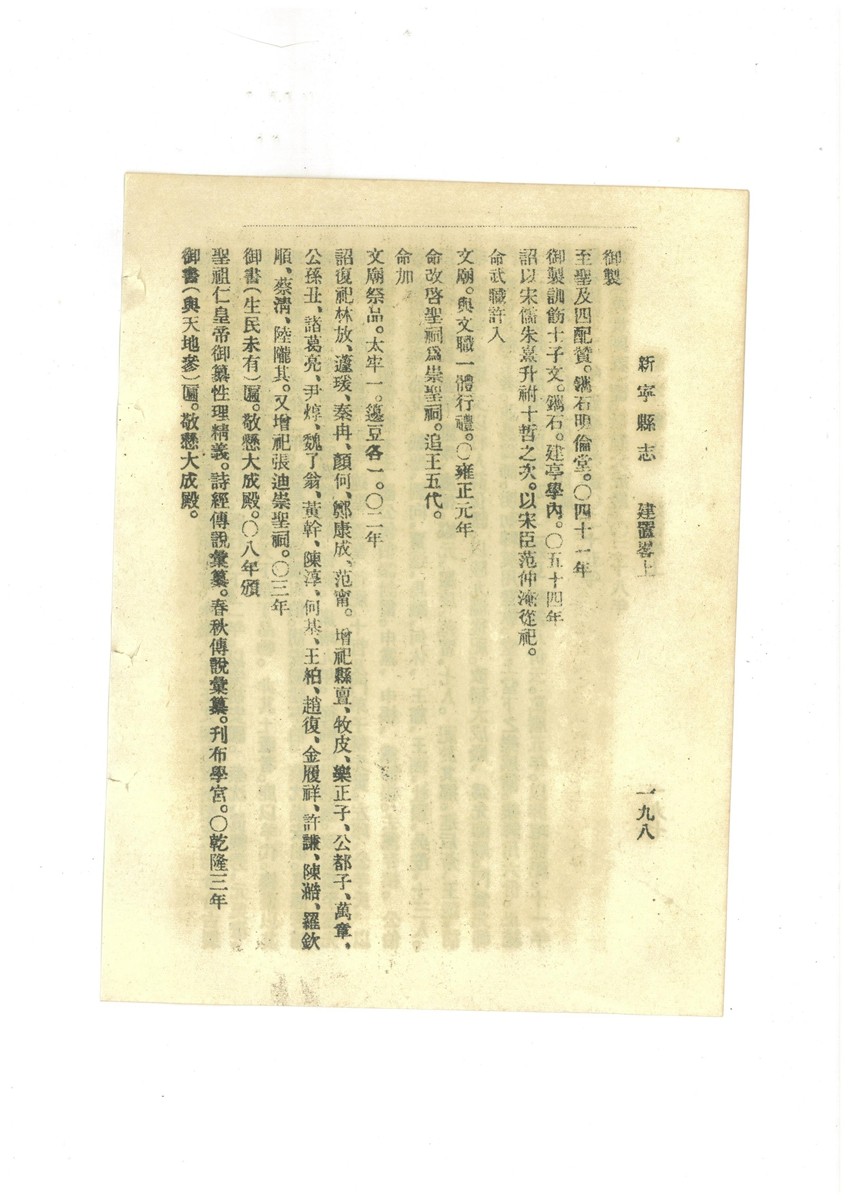 新寧縣志　建置畧上　一九八
御製
至聖及四配贊。鐫石明倫堂。〇四十一年
御製訓飭士子文。鐫石。建亭學內。〇五十四年
詔以宋儒朱熹升祔十哲之次。以宋臣范仲淹從祀。
命武職許入
文廟。與文職一體行禮。〇雍正元年
命改啓聖祠爲崇聖祠。追王五代。
命加
文廟祭品。太牢一。籩豆各一。〇二年
詔復祀林放、蘧瑗、秦冉、顏何、鄭康成、范甯。增祀縣亶、牧皮、樂正子、公都子、萬章、
公孫丑、諸葛亮、尹焞、魏了翁、黃幹、陳淳、何基、王柏、趙復、金履祥、許謙、陳澔、羅欽
順、蔡淸、陸隴其。又增祀張迪崇聖祠。〇三年
御書（生民未有）匾。敬懸大成殿。〇八年頒
聖祖仁皇帝御纂性理精義。詩經傳說彙纂。春秋傳說彙纂。刊布學宮。〇乾隆三年
御書（與天地參）匾。敬懸大成殿。